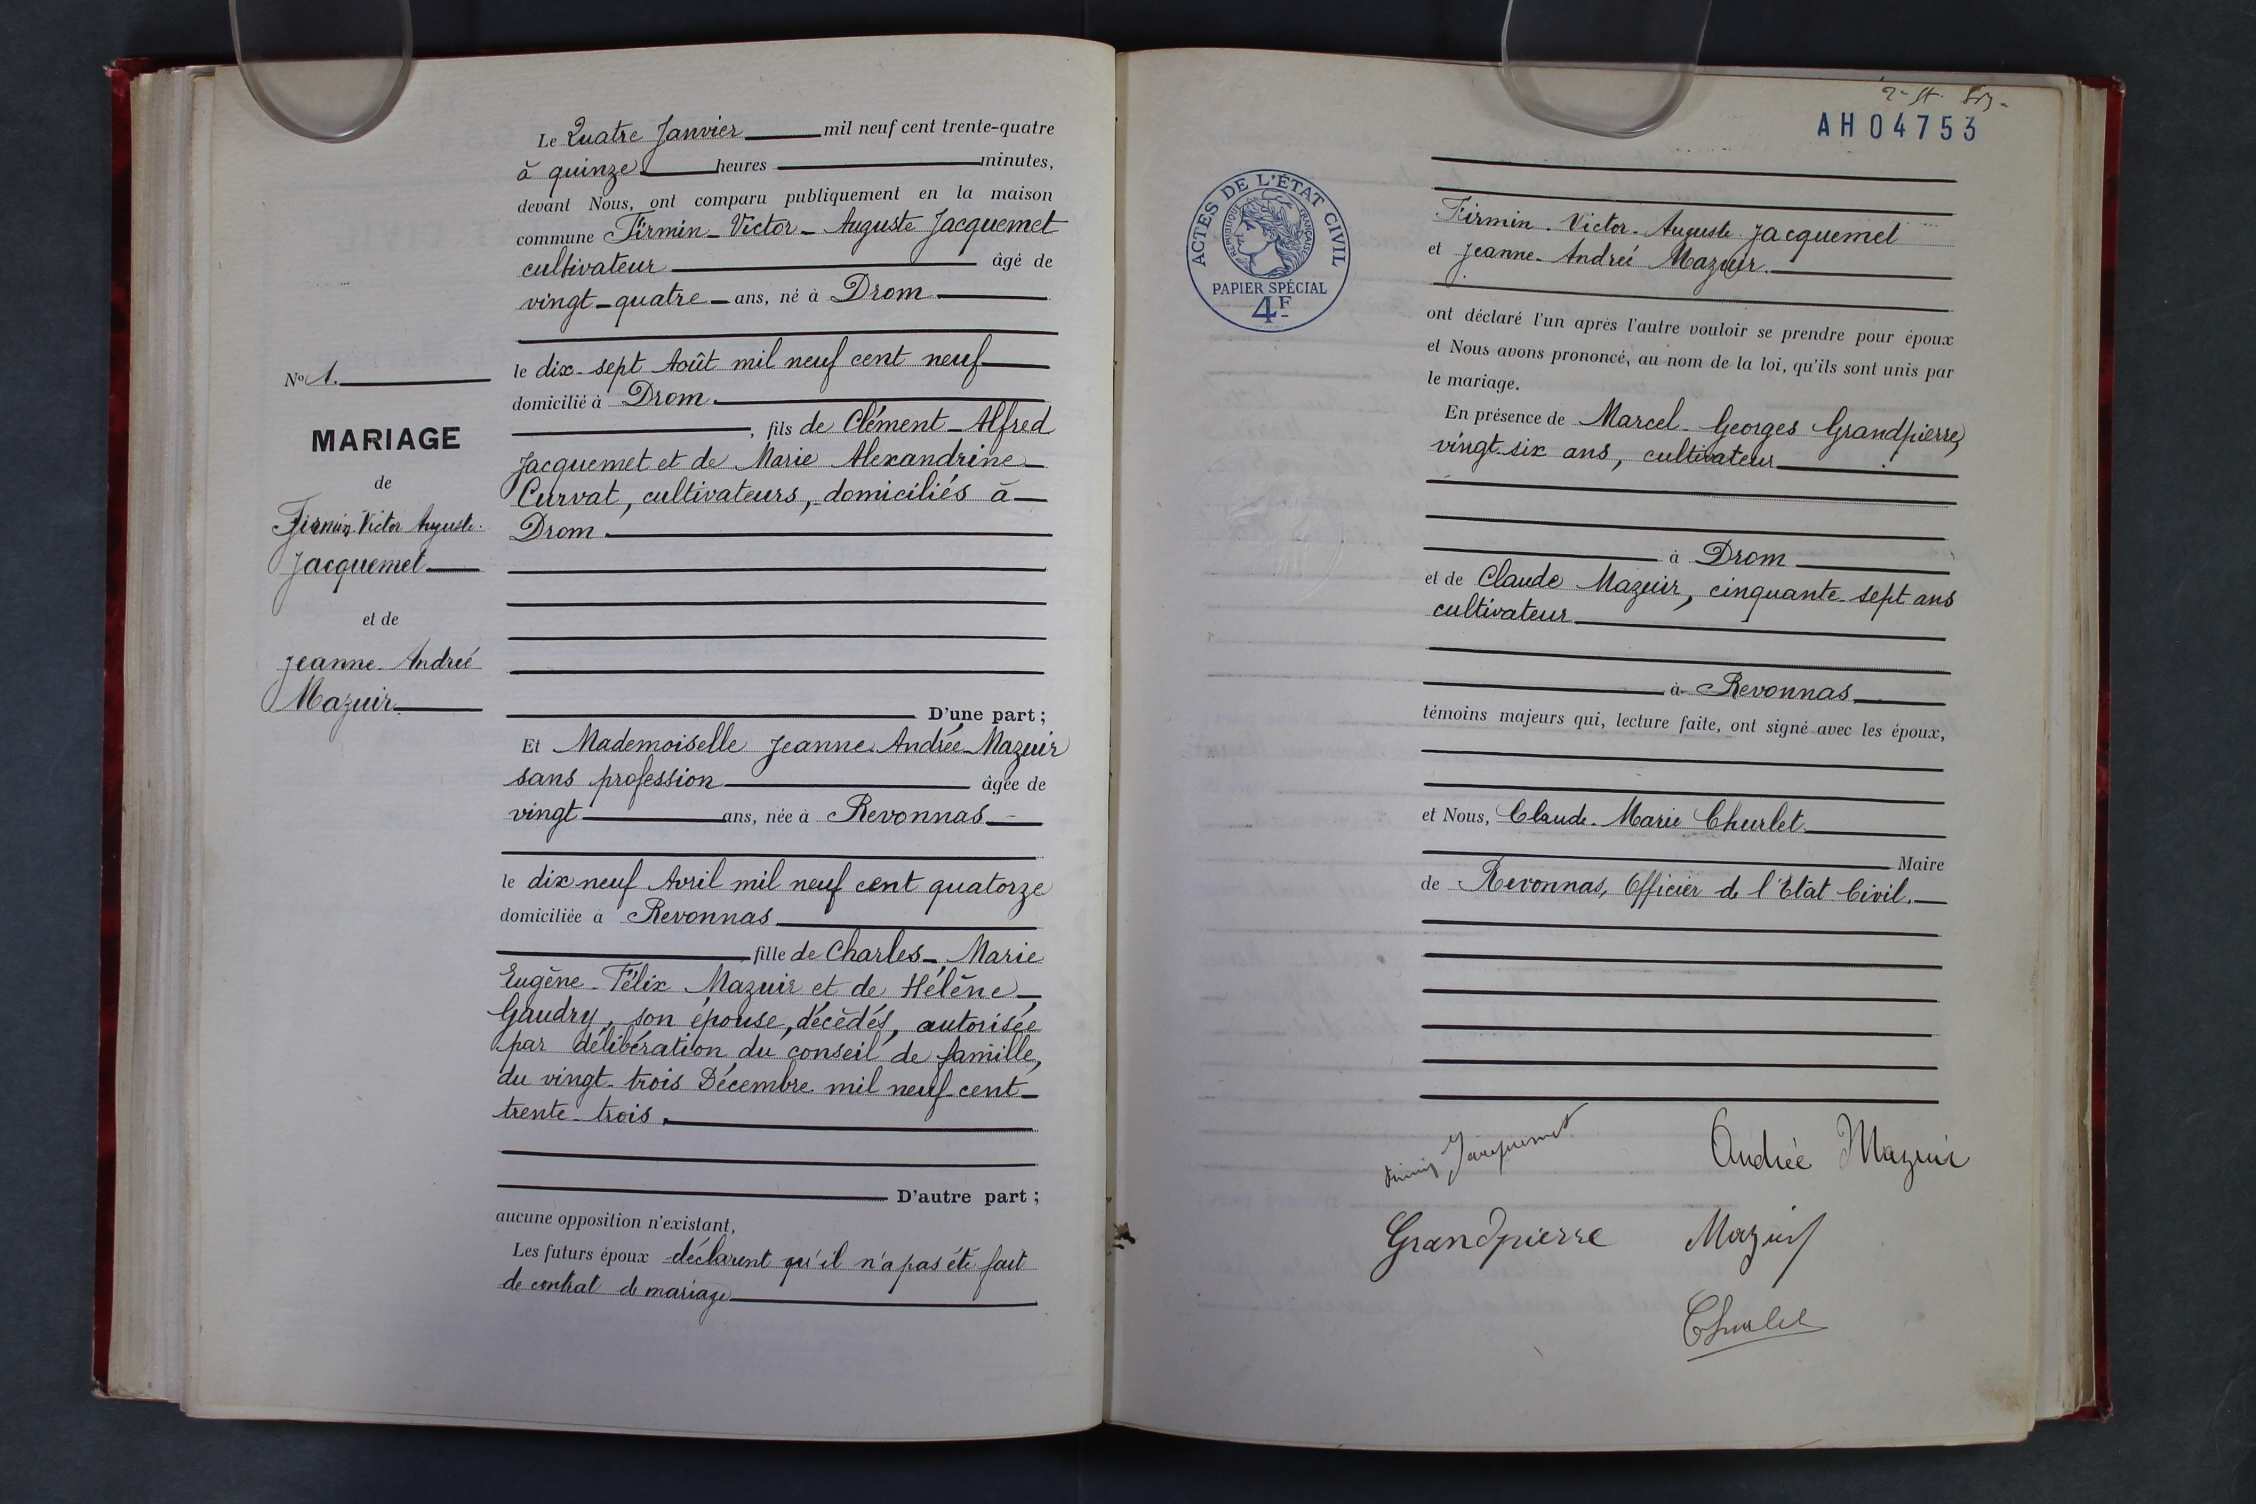 Le Quatre Janvier mil neuf cent trente-quatre
à quinze heures minutes,
devant Nous, ont comparu publiquement en la maison
commune Firmin-Victor-Auguste Jacquemet
cultivateur âgé de
vingt-quatre ans, né à Drom
le dix-sept Août mil neuf cent neuf
domicilié à Drom.
, fils de Clément-Alfred
Jacquemet et de Marie Alexandrine
Curvat, cultivateurs, domiciliés à
Drom.
D'une part ;
Et Mademoiselle Jeanne Andrée Mazuir
sans profession âgée de
vingt ans, née à Revonnas
le dix neuf Avril mil neuf cent quatorze
domiciliée à Revonnas
fille de Charles-Marie
Eugène-Félix Mazuir et de Hélène
Gaudry, son épouse, décédés, autorisée
par délibération du conseil de famille,
du vingt-trois Décembre mil neuf cent
trente-trois.
D'autre part ;
aucune opposition n'existant,
Les futurs époux déclarent qu'il n'a pas été fait
de contrat de mariage
No 1.
MARIAGE
de
Firmin Victor Auguste
Jacquemet
et de
Jeanne-Andrée
Mazuir
AH04753
ACTES DE L'ÉTAT CIVIL
RÉPUBLIQUE FRANÇAISE
PAPIER SPÉCIAL
4F
Firmin-Victor-Auguste Jacquemet
et Jeanne-Andrée Mazuir.
ont déclaré l'un après l'autre vouloir se prendre pour époux
et Nous avons prononcé, au nom de la loi, qu'ils sont unis par
le mariage.
En présence de Marcel-Georges Grandpierre,
vingt-six ans, cultivateur
à Drom
et de Claude Mazuir, cinquante-sept ans
cultivateur
à Revonnas
témoins majeurs qui, lecture faite, ont signé avec les époux,
et Nous, Claude-Marie Churlet
Maire
de Revonnas, Officier de l'Etat Civil.
Firmin Jacquemet
Andrée Mazuir
Grandpierre
Mazuir
Churlet